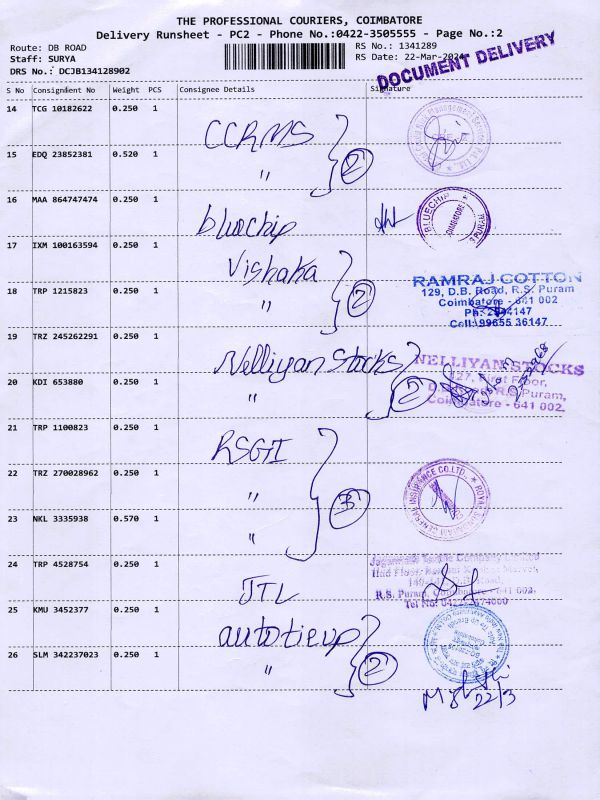 THE PROFESSIONAL COURIERS, COIMBATORE
Delivery Runsheet - PC2 - Phone No.:0422-3505555 - Page No.:2
Route: DB ROAD
Staff: SURYA
DRS No.: DCJB134128902
RS No.: 1341289
RS Date: 22-Mar-2024
DOCUMENT DELIVERY
S No Consignment No Weight PCS Consignee Details Signature
14 TCG 10182622 0.250 1
CCRMS
2
15 EDQ 23852381 0.520 1
"
16 MAA 864747474 0.250 1
bluechip
BLUECHIP
COIMBATORE
17 IXM 100163594 0.250 1
Vishaka
2
RAMRAJ COTTON
129, D.B. Road, R.S. Puram
Coimbatore - 641 002
Cell: 99655 36147
18 TRP 1215823 0.250 1
"
19 TRZ 245262291 0.250 1
Nelliyan Stocks
2
NELLIYAN STOCKS
127, First Floor,
R.S Puram,
Coimbatore - 641 002.
20 KDI 653880 0.250 1
"
21 TRP 1100823 0.250 1
RSGI
3
22 TRZ 270028962 0.250 1
"
ROYAL SUNDARAM GENERAL INSURANCE CO.LTD.
23 NKL 3335938 0.570 1
"
24 TRP 4528754 0.250 1
JTL
R.S. Puram, Coimbatore - 641 002.
25 KMU 3452377 0.250 1
autotieup
2
26 SLM 342237023 0.250 1
"
22/3